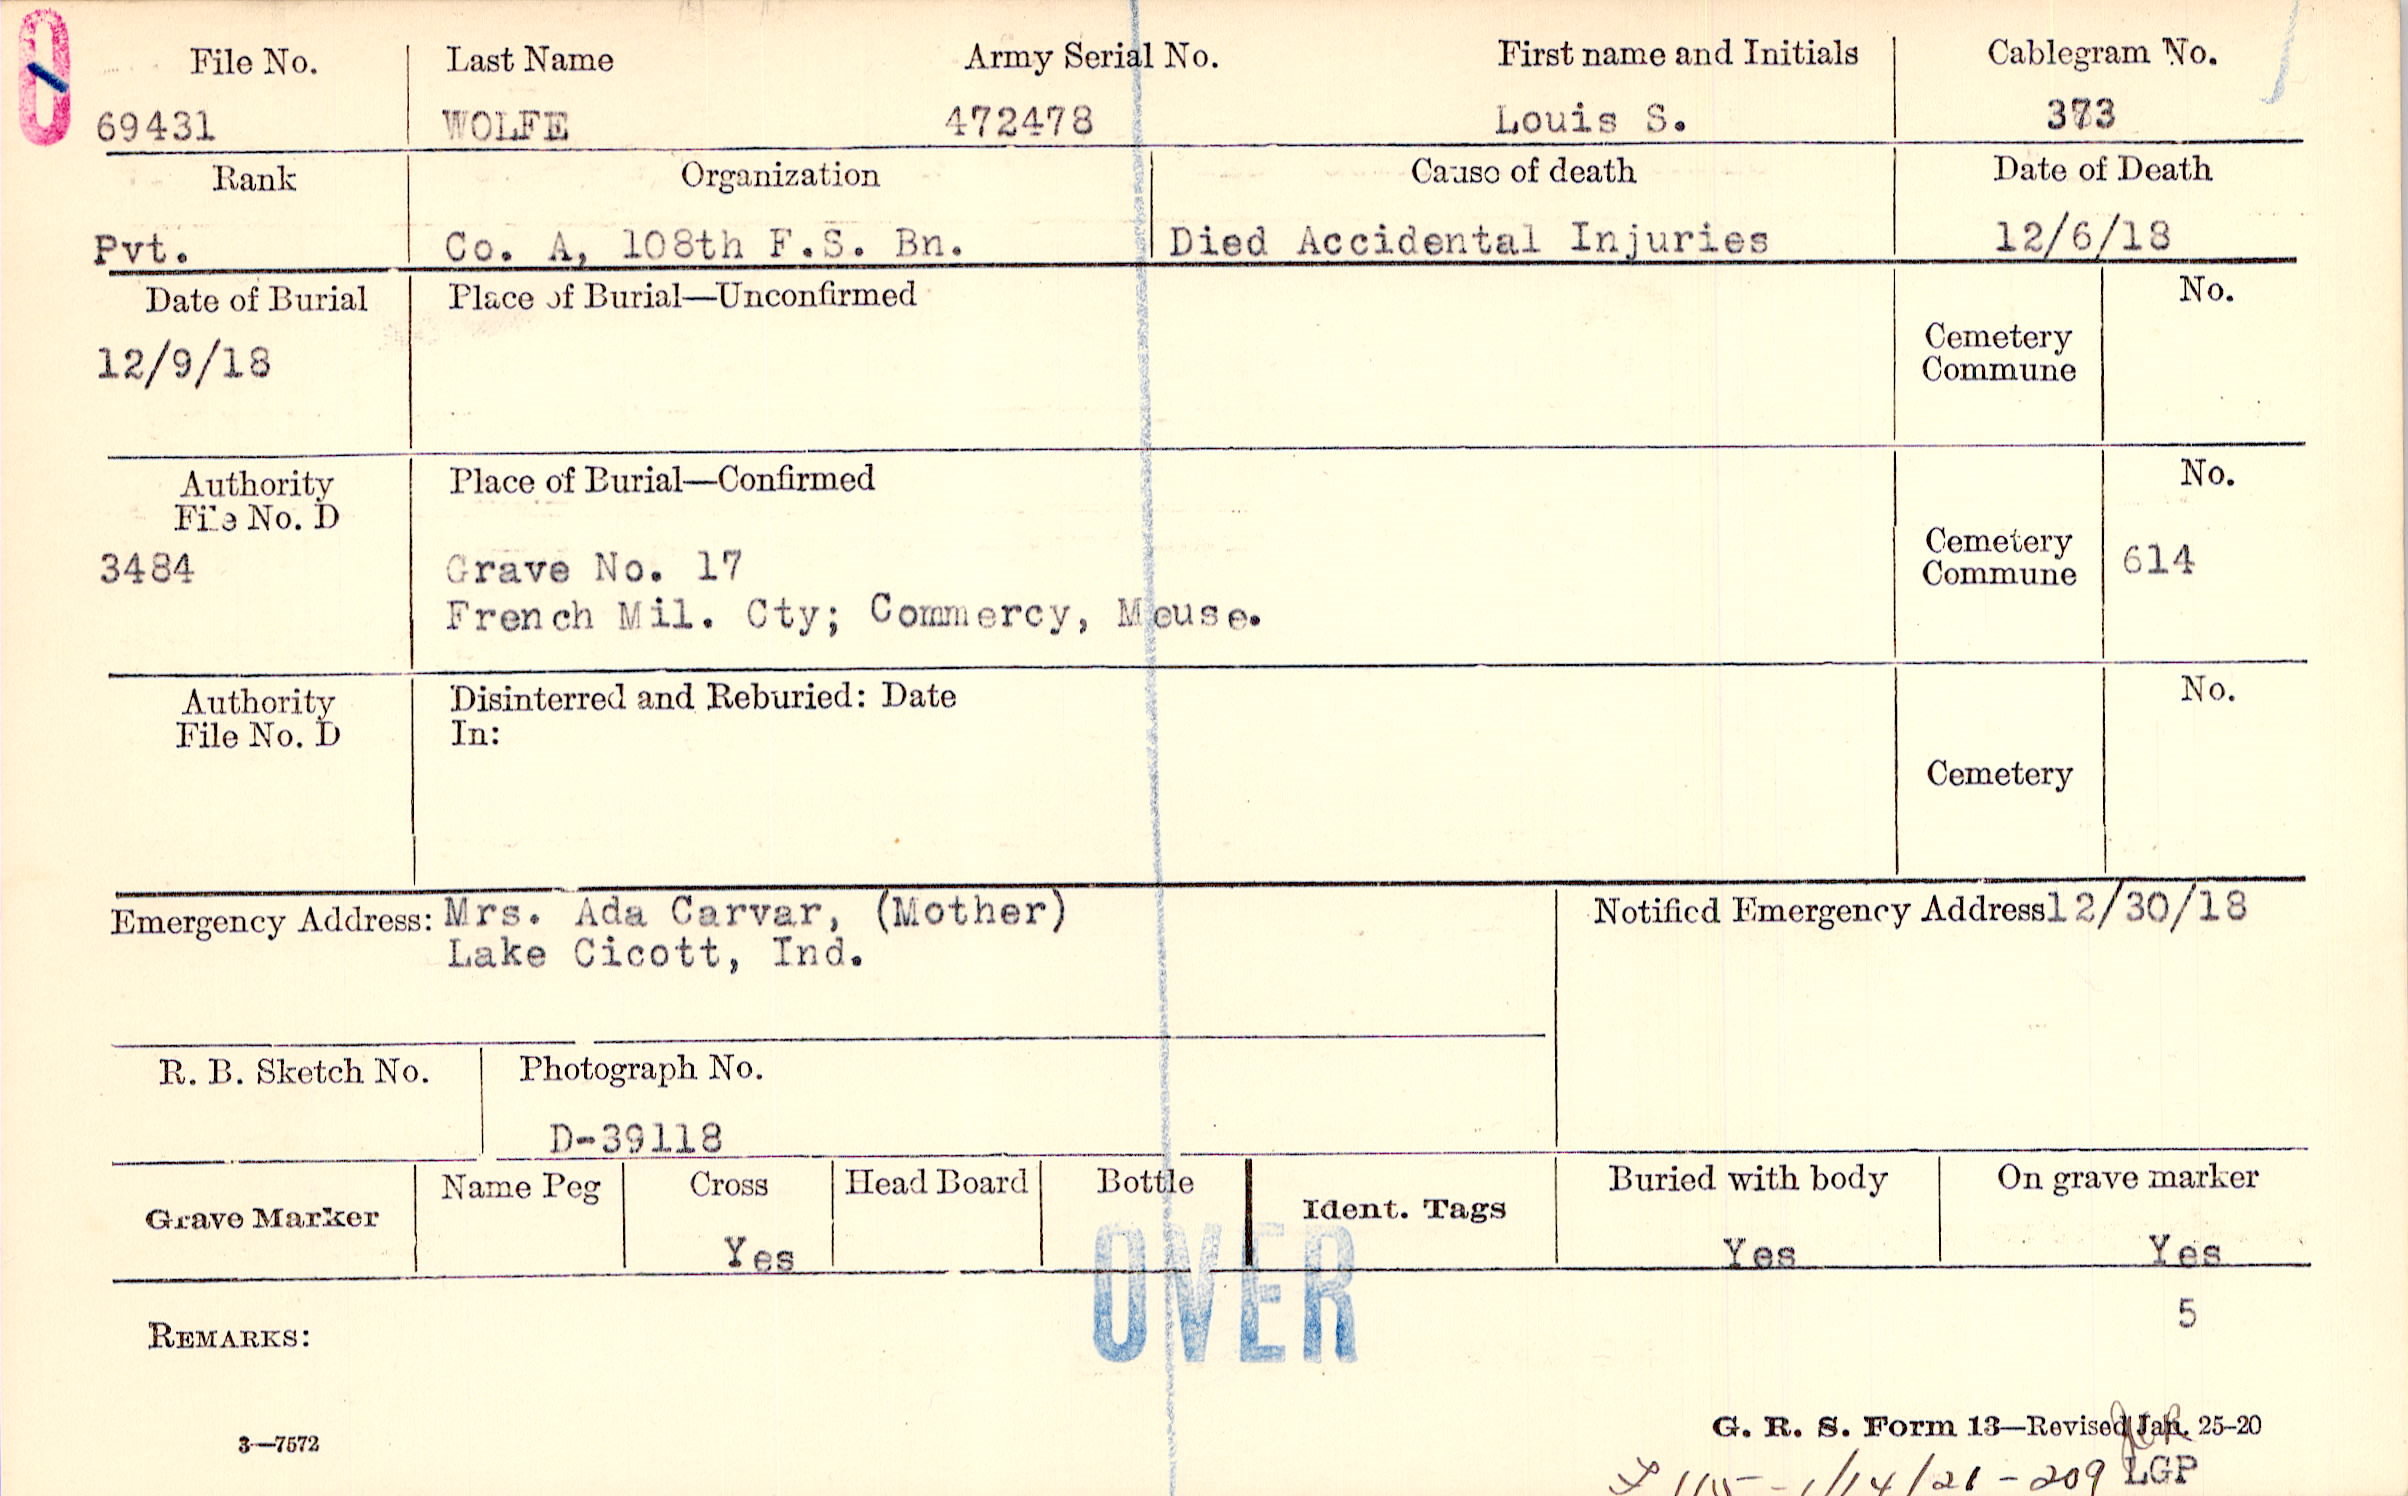 File No. Last Name Army Serial No. First name and Initials Cablegram No.
69431 WOLFE 472478 Louis S. 373
Rank Organization Cause of death Date of Death
Pvt. Co. A, 108th F.S. Bn. Died Accidental Injuries 12/6/18
Date of Burial Place of Burial—Unconfirmed No.
12/9/18 Cemetery
Commune
Authority Place of Burial—Confirmed No.
File No. D
3484 Grave No. 17 Cemetery 614
Commune
French Mil. Cty; Commercy, Meuse.
Authority Disinterred and Reburied: Date No.
File No. D In:
Cemetery
Emergency Address: Mrs. Ada Carvar, (Mother) Notified Emergency Address 12/30/18
Lake Cicott, Ind.
R. B. Sketch No. Photograph No.
D-39118
Name Peg Cross Head Board Bottle Buried with body On grave marker
Grave Marker Ident. Tags
Yes Yes Yes
OVER
5
REMARKS:
3—7572 G. R. S. Form 13—Revised Jan. 25-20
1/14/21 - 209 LGP